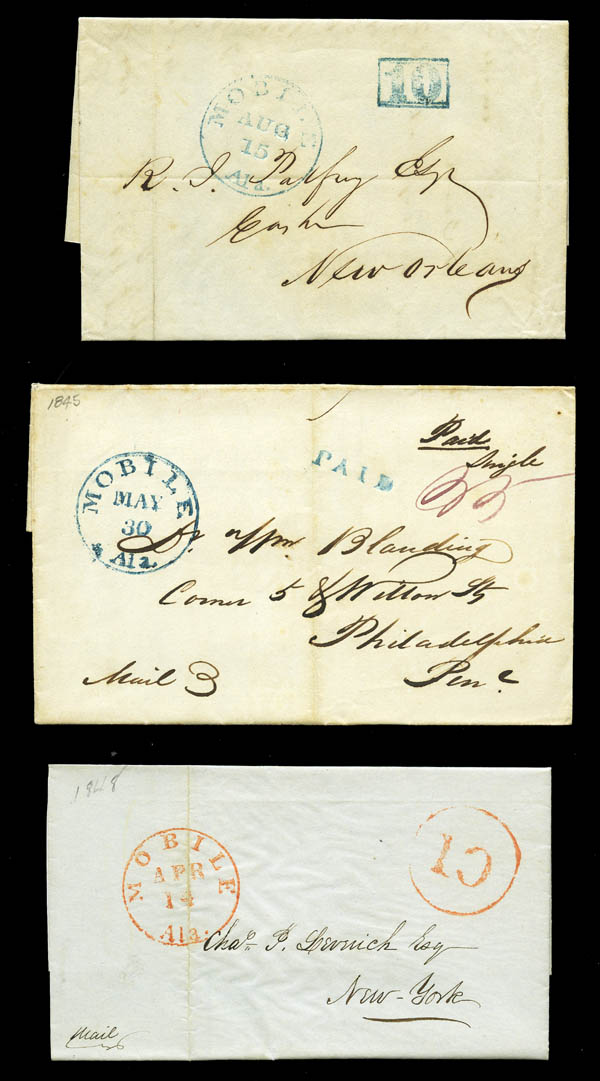 MOBILE
AUG
15
Ala.
10
R. J. Palfrey Esqr
Cashr
New Orleans
1845
MOBILE
MAY
30
Ala.
PAID
Paid
Single
25
Dr. Wm Blanding
Corner 5 & Willow Sts
Philadelphia
Mail 3
Pena
1848
MOBILE
APR
14
Ala.
10
Chas P. Leverich Esq
New-York
Mail